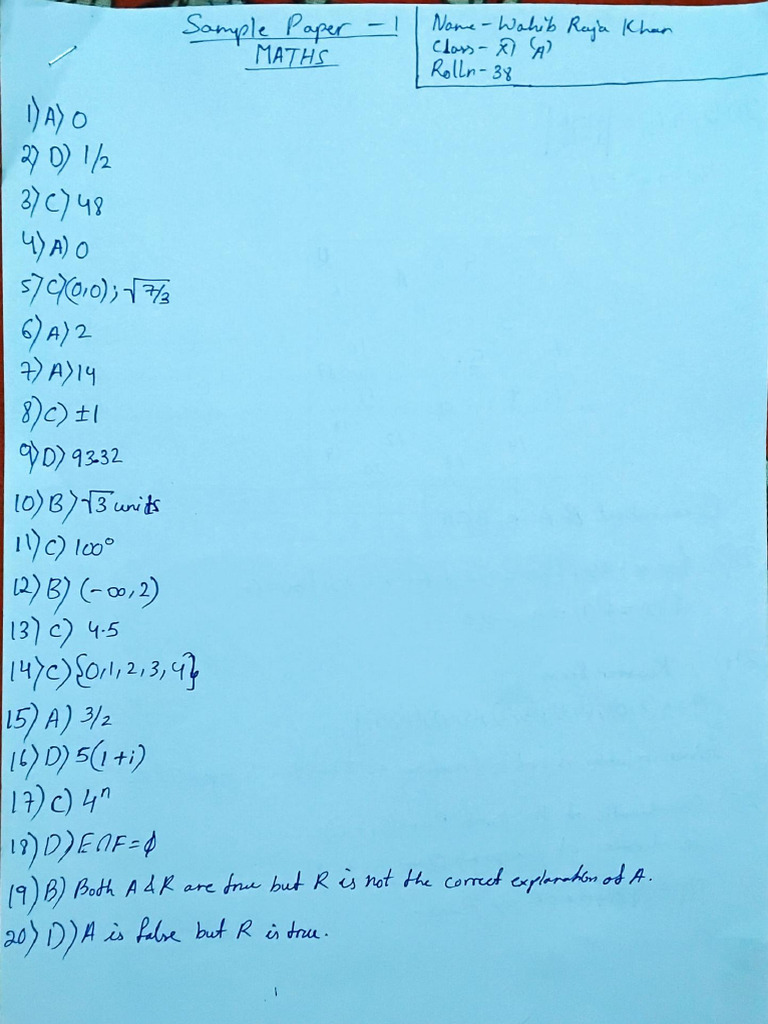 Sample Paper - 1
MATHS
Name - Wahib Raja Khan
Class - XI (A)
Rolln - 38
1) A) 0
2) D) 1/2
3) C) 48
4) A) 0
5) C) (0,0); √7/3
6) A) 2
7) A) 14
8) C) ±1
9) D) 9332
10) B) √3 units
11) C) 100°
12) B) (-∞, 2)
13) C) 4.5
14) C) {0,1,2,3,4}
15) A) 3/2
16) D) 5(1+i)
17) C) 4ⁿ
18) D) E∩F=ϕ
19) B) Both A & R are true but R is not the correct explanation of A.
20) D) A is false but R is true.